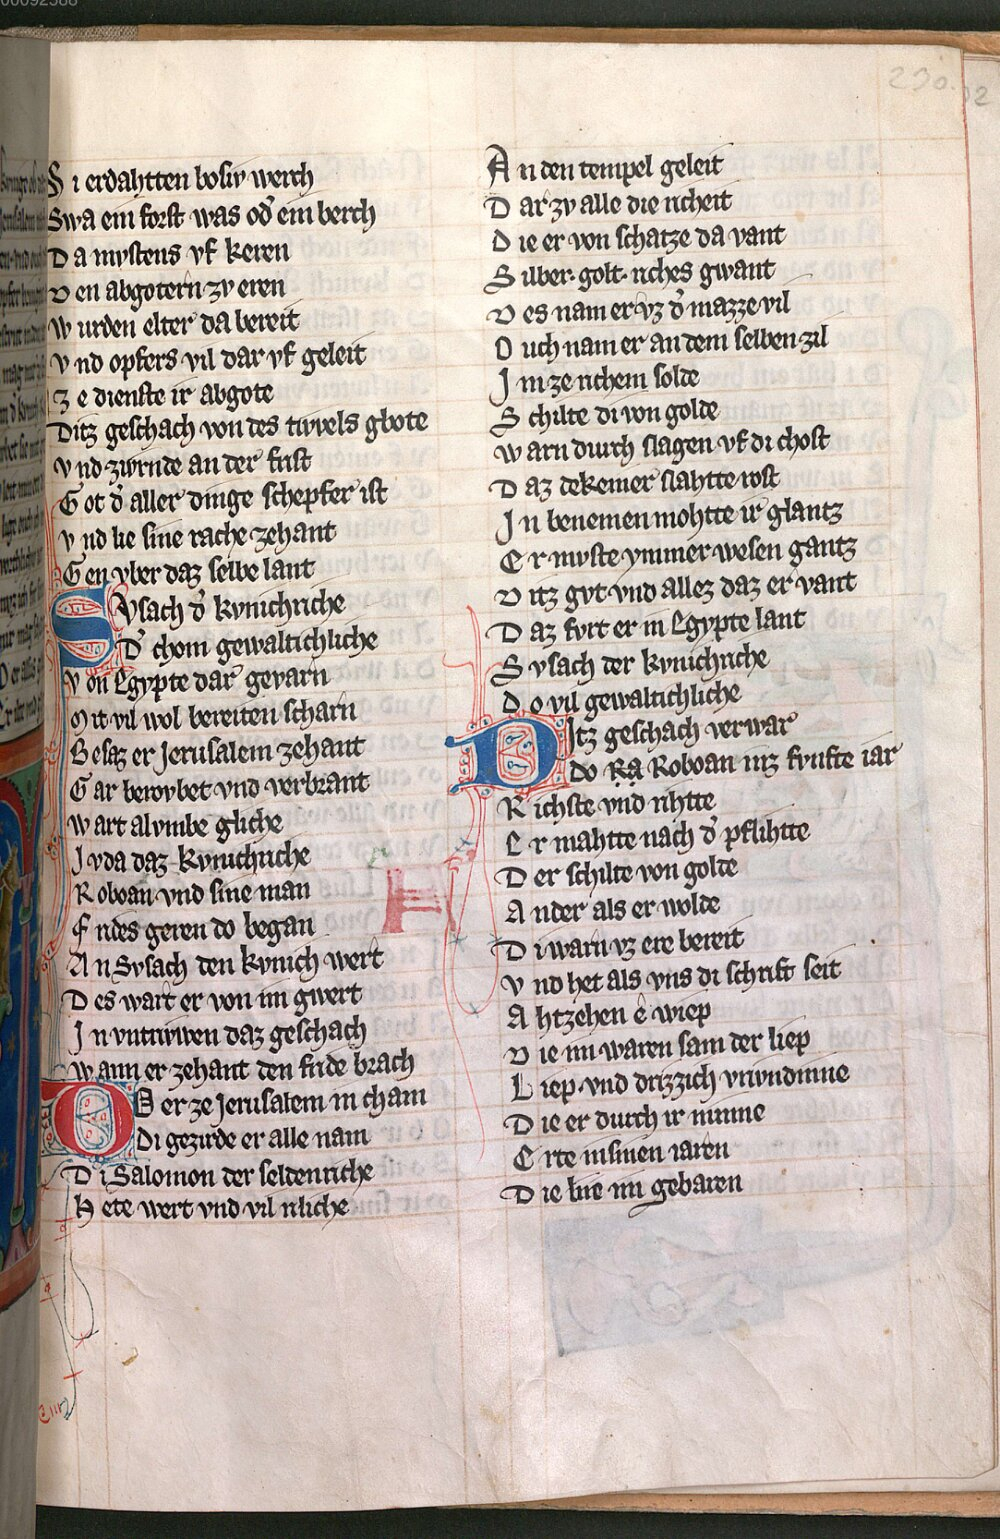 Si erdahtten bosiv werch
Swa ein forst was od̕ ein berch
Da mvstens vf keren
Den abgotern zv eren
Wurden elter da bereit
Vnd opfers vil dar vf geleit
Ze dienste ir abgote
Ditz geschach von des tivvels gbote
Vnd zvrnde an der frist
Got d̕ aller dinge schepfer ist
Vnd lie sine rache zehant
Gen vber daz selbe lant
Svsach d̕ kvnichriche
D̕ chom gewaltichliche
Von Egypte dar gevarn
Mit vil wol bereiten scharn
Besaz er Jerusalem zehant
Gar berovbet vnd verbrant
Wart alvmbe gliche
Jvda daz kvnichriche
Roboan vnd sine man
Frides geren do began
An Svsach den kvnich wert
Des wart er von im gwert
In vntriwen daz geschach
Wann er zehant den fride brach
Do er ze Jerusalem in cham
Di gezirde er alle nam
Di Salomon der seldenriche
Hete wert vnd vil richliche
An den tempel geleit
Dar zv alle die richeit
Die er von schatze da vant
Silber· golt· riches gwant
Des nam er vz d̕ mazze vil
Ouch nam er an dem selben zil
Im ze richem solde
Schilte di von golde
Warn durch slagen vf di chost
Daz dekeiner slahtte rost
In benemen mohtte ir glantz
Er mvste ymmer wesen gantz
Ditz gvt vnd allez daz er vant
Daz fvrt er in Egypte lant
Svsach der kvnichriche
Do vil gewaltichliche
Ditz geschach verwar
Do Ra Roboan inz fvnfte iar
Richste vnd rihtte
Er mahtte nach d̕ pflihtte
Der schilte von golde
Ander als er wolde
Di warn vz ere bereit
Vnd het als vns di schrift seit
Ahtzehen e wiep
Die im waren sam der liep
Liep· vnd drizzich vrivndinne
Die er durch ir minne
Erte in sinen iaren
Die lie im gebaren
H
230.